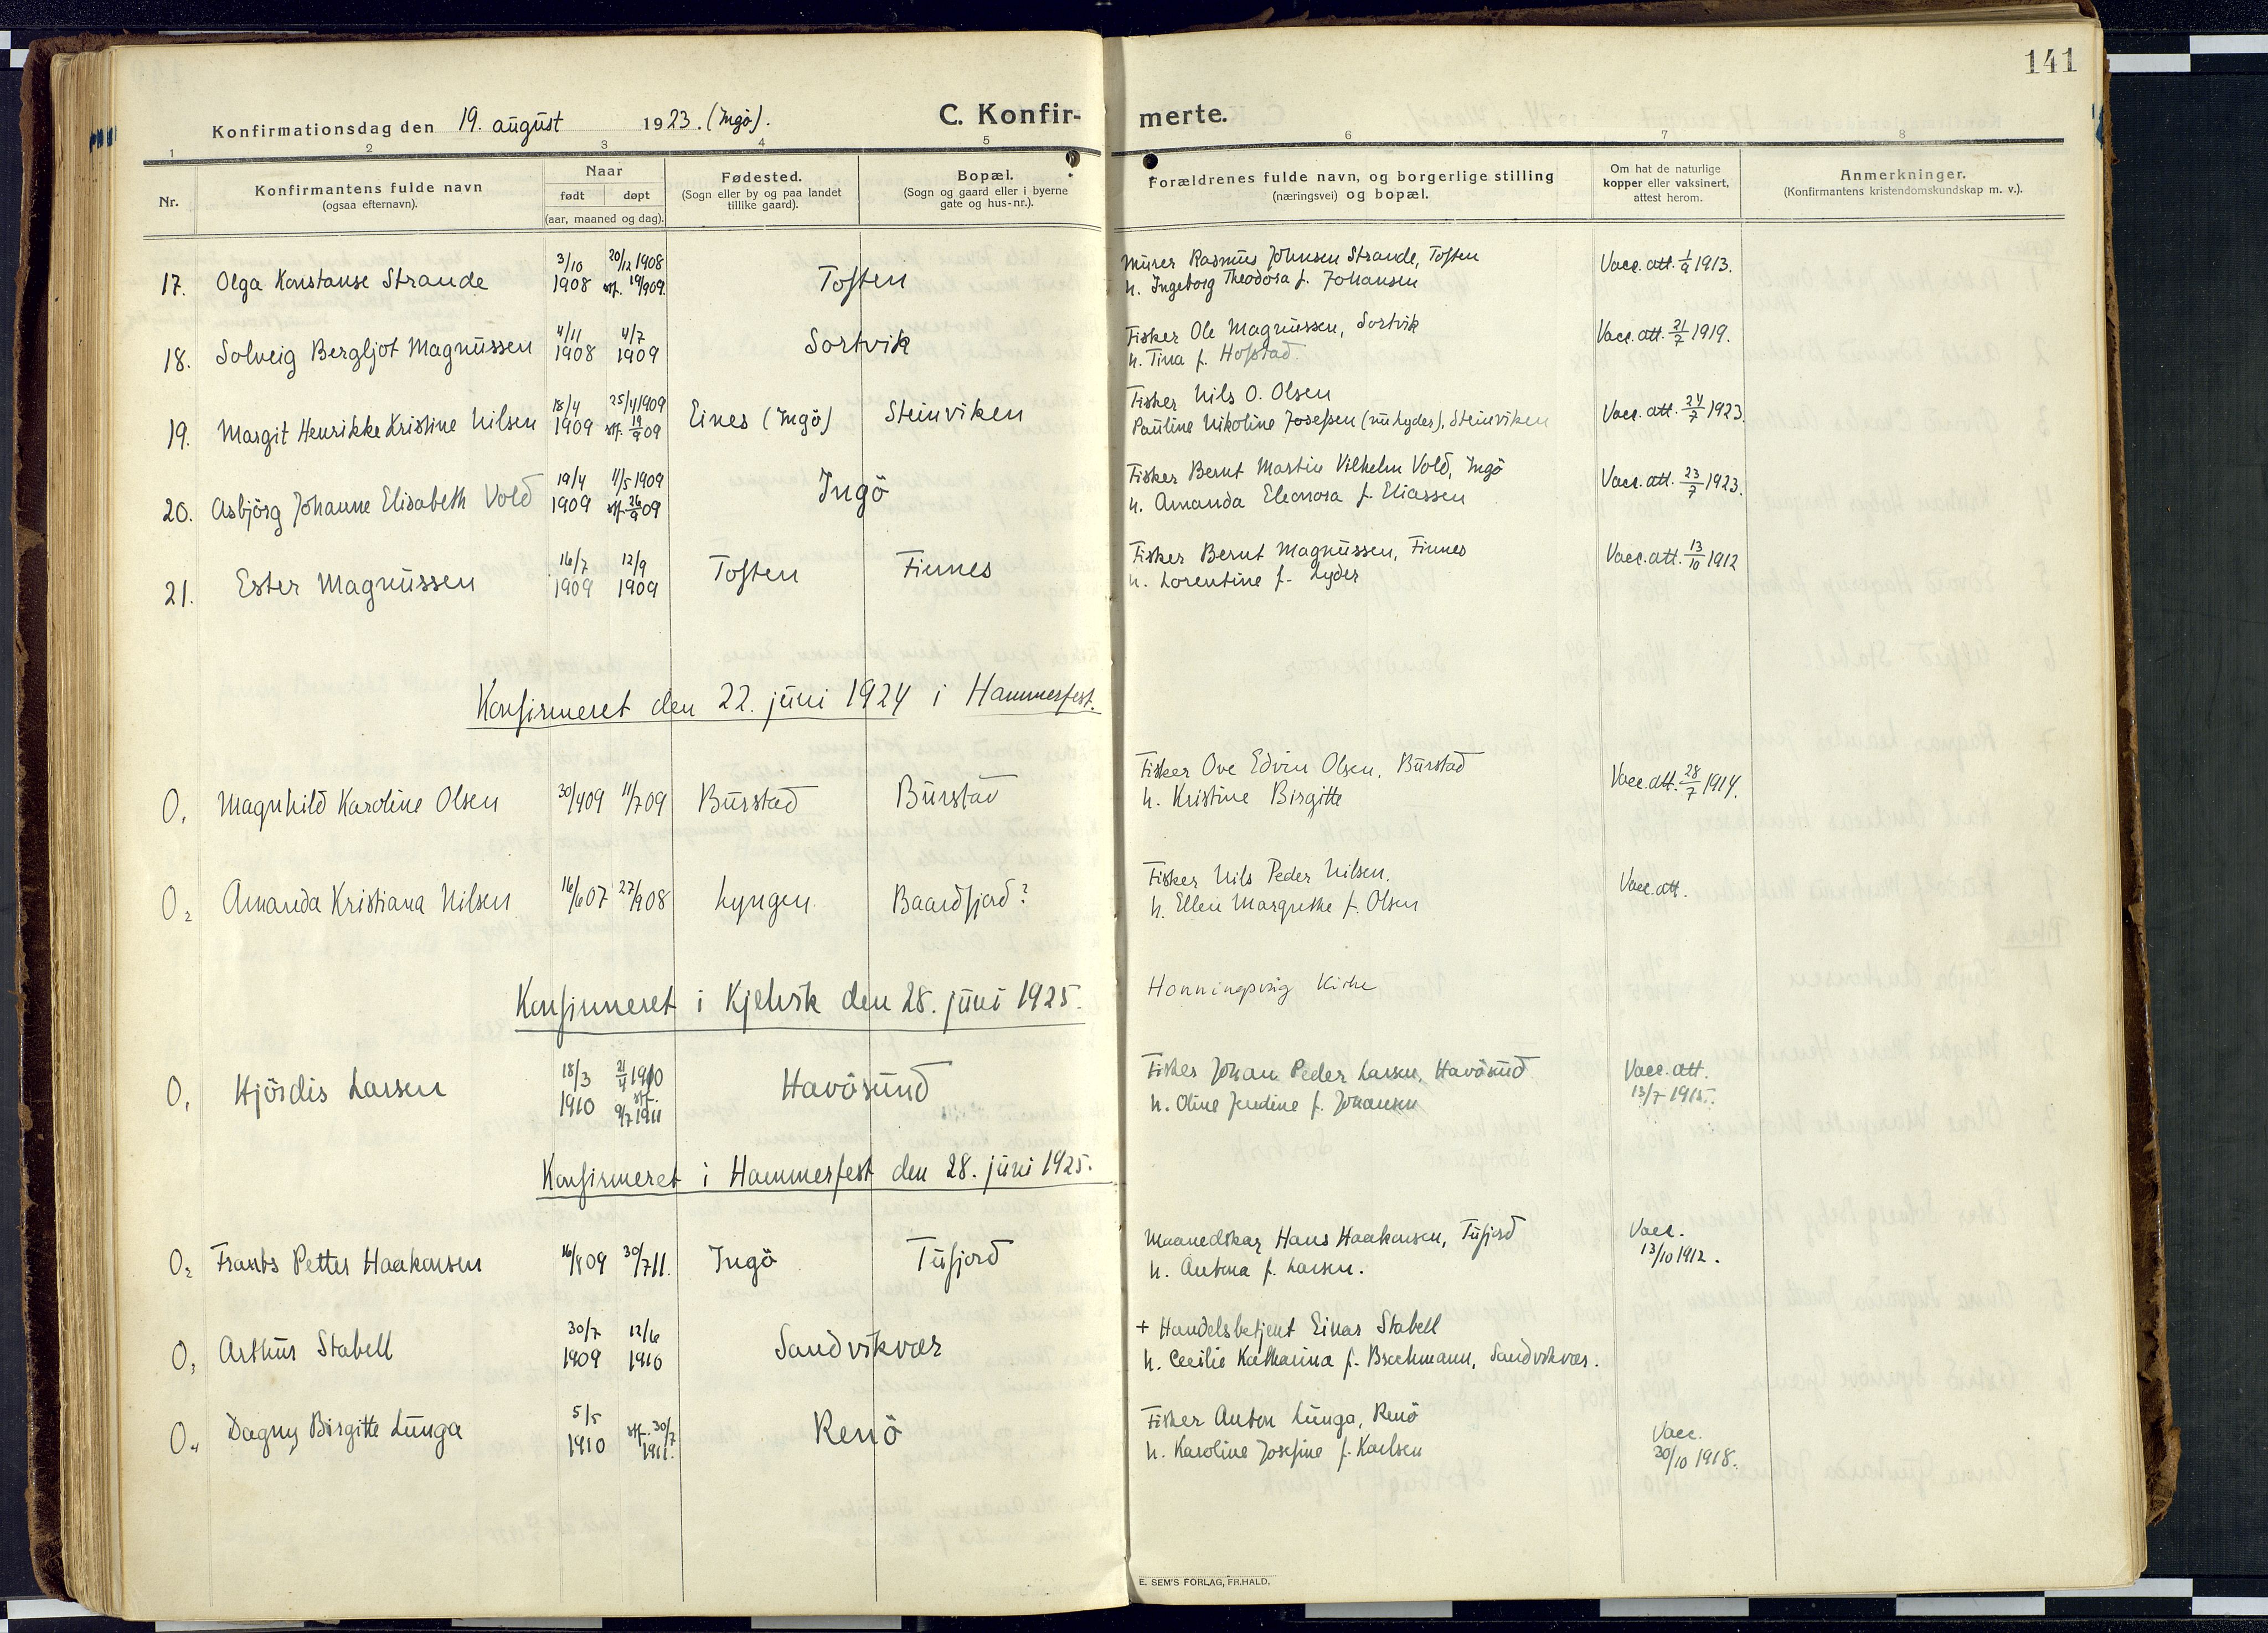 141
Konfirmationsdag den 19. august 1923. (Ingö).
C. Konfir-
merte.
1 2 3 4 5 6 7 8
Nr.
Konfirmantens fulde navn
(ogsaa efternavn).
Naar
født døpt
(aar, maaned og dag).
Fødested.
(Sogn eller by og paa landet
tillike gaard).
Bopæl.
(Sogn og gaard eller i byerne
gate og hus-nr.).
Forældrenes fulde navn, og borgerlige stilling
(næringsvei) og bopæl.
Om hat de naturlige
kopper eller vaksinert,
attest herom.
Anmerkninger.
(Konfirmantens kristendomskundskap m. v.).
17. Olga Konstanse Strande 3/10 1908 20/12 1908 stf. 19/909. Toften
Murer Rasmus Johnsen Strande, Toften
h. Ingeborg Theodora f. Johansen
Vacc. att. 1/9 1913.
18. Solveig Bergljot Magnussen 4/11 1908 4/7 1909 Sortvik
Fisker Ole Magnussen, Sortvik
h. Tina f. Hofstad.
Vacc. att. 21/7 1919.
19. Margit Henrikke Kristine Nilsen 18/4 1909 25/4 1909 stf. 19/9 09 Eines (Ingö) Steinviken
Fisker Nils O. Olsen
Pauline Nikoline Josefsen (nu Lyder), Steinviken
Vacc. att. 24/7 1923.
20. Asbjörg Johanne Elisabeth Vold 19/4 1909 11/5 1909 stf. 26/9 09 Ingö
Fisker Bernt Martin Vilhelm Vold, Ingö
h. Amanda Eleonora f. Eliassen
Vacc. att. 23/7 1923.
21. Ester Magnussen 16/7 1909 12/9 1909 Toften Finnes
Fisker Bernt Magnussen, Finnes
h. Lorentine f. Lyder
Vacc. att. 13/10 1912
Konfirmeret den 22. juni 1924 i Hammerfest.
0, Magnhild Karoline Olsen 30/409 11/709 Burstad Burstad
Fisker Ove Edvin Olsen, Burstad
h. Kristine Birgitte
Vacc. att. 28/7 1914.
0₂ Amanda Kristiana Nilsen 16/607 27/908 Lyngen Baardfjord?
Fisker Nils Peder Nilsen.
h. Ellen Margrethe f. Olsen
Vacc. att.
Konfirmeret i Kjelvik den 28. juni 1925.
Honningsvåg Kirke
0, Hjördis Larsen 18/3 1910 21/4 1910 stf. 9/7 1911 Havösund
Fisker Johan Peder Larsen, Havösund
h. Oline Jendine f. Johansen
Vacc. att.
13/7 1915.
Konfirmeret i Hammerfest den 28. juni 1925.
0₂ Frants Petter Haakonsen 16/809 30/711. Ingö Tufjord
Maanedskar Hans Haakonsen, Tufjord
h. Antona f. Larsen.
Vacc.
13/10 1912.
0₃ Arthur Stabell 30/7 1909 12/6 1910 Sandvikvær
+ Handelsbetjent Einar Stabell
h. Cecilie Katharina f. Brechmann, Sandvikvær.
0₄ Dagny Birgitte Lunga 5/5 1910 stf. 30/7 1911. Renö
Fisker Anton Lunga, Renö
h. Karoline Josefine f. Karlsen
Vacc.
30/10 1918.
E. SEM'S FORLAG, FR.HALD.